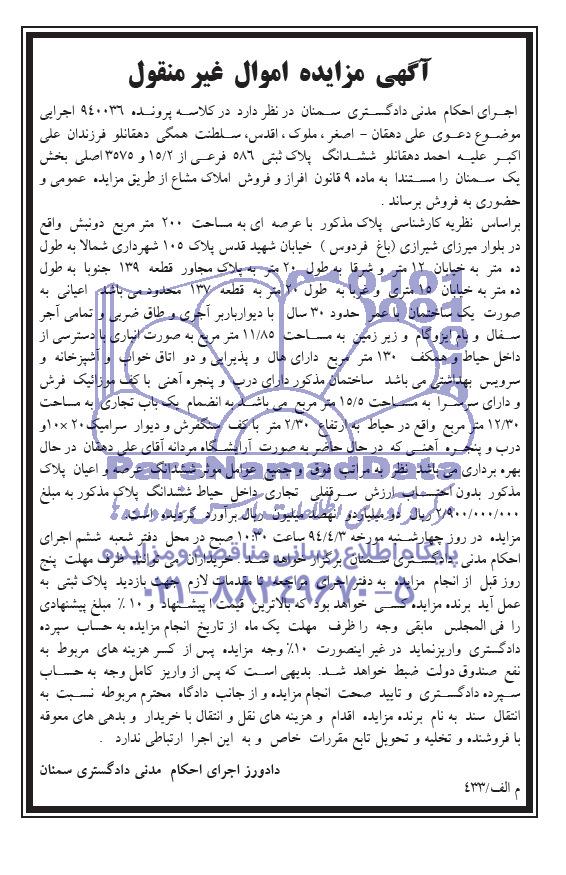 آگهی مزایده اموال غیر منقول
اجرای احکام مدنی دادگستری سمنان در نظر دارد در کلاسه پرونده ۹۴۰۰۳۶ اجرایی
موضوع دعوی علی دهقان - اصغر ، ملوک ، اقدس، سلطنت همگی دهقانلو فرزندان علی
اکبر علیه احمد دهقانلو ششدانگ پلاک ثبتی ۵۸۶ فرعی از ۱۵/۲ و ۳۵۷۵ اصلی بخش
یک سمنان را مستندا به ماده ۹ قانون افراز و فروش املاک مشاع از طریق مزایده عمومی و
حضوری به فروش برساند .
براساس نظریه کارشناسی پلاک مذکور با عرصه ای به مساحت ۲۰۰ متر مربع دونبش واقع
در بلوار میرزای شیرازی (باغ فردوس ) خیابان شهید قدس پلاک ۱۰۵ شهرداری شمالا به طول
ده متر به خیابان ۱۲ متر و شرقا به طول ۲۰ متر به پلاک مجاور قطعه ۱۳۹ جنوبا به طول
ده متر به خیابان ۱۵ متری و غربا به طول ۲۰ متر به قطعه ۱۳۷ محدود می باشد اعیانی به
صورت یک ساختمان با عمر حدود ۳۰ سال با دیوارباربر آجری و طاق ضربی و نمای آجر
سفال و بام ایزوگام و زیر زمین به مساحت ۱۱/۸۵ متر مربع به صورت انباری با دسترسی از
داخل حیاط و همکف ۱۳۰ متر مربع دارای هال و پذیرایی و دو اتاق خواب و آشپزخانه و
سرویس بهداشتی می باشد ساختمان مذکور دارای درب و پنجره آهنی با کف موزائیک فرش
و دارای سرسرا به مساحت ۱۵/۵ متر مربع می باشد به انضمام یک باب تجاری به مساحت
۱۲/۳۰ متر مربع واقع در حیاط به ارتفاع ۲/۳۰ متر با کف سنگفرش و دیوار سرامیک۲۰ ×۱۰و
درب و پنجره آهنی که در حال حاضر به صورت آرایشگاه مردانه آقای علی دهقان در حال
بهره برداری می باشد نظر به مراتب فوق و جمیع عوامل موثر ششدانگ عرصه و اعیان پلاک
مذکور بدون احتساب ارزش سرقفلی تجاری داخل حیاط ششدانگ پلاک مذکور به مبلغ
۲/۹۰۰/۰۰۰/۰۰۰ ریال دو میلیاردو نهصد میلیون ریال برآورد گردیده است.
مزایده در روز چهارشنبه مورخه ۹۴/۴/۳ ساعت ۱۰:۳۰ صبح در محل دفتر شعبه ششم اجرای
احکام مدنی دادگستری سمنان برگزار خواهد شد . خریداران می توانند ظرف مهلت پنج
روز قبل از انجام مزایده به دفتر اجرای مراجعه تا مقدمات لازم جهت بازدید پلاک ثبتی به
عمل آید برنده مزایده کسی خواهد بود که بالاترین قیمت را پیشنهاد و ۱۰ ٪ مبلغ پیشنهادی
را فی المجلس مابقی وجه را ظرف مهلت یک ماه از تاریخ انجام مزایده به حساب سپرده
دادگستری واریزنماید در غیر اینصورت ۱۰٪ وجه مزایده پس از کسر هزینه های مربوط به
نفع صندوق دولت ضبط خواهد شد. بدیهی است که پس از واریز کامل وجه به حساب
سپرده دادگستری و تایید صحت انجام مزایده و از جانب دادگاه محترم مربوطه نسبت به
انتقال سند به نام برنده مزایده اقدام و هزینه های نقل و انتقال با خریدار و بدهی های معوقه
با فروشنده و تخلیه و تحویل تابع مقررات خاص و به این اجرا ارتباطی ندارد .
دادورز اجرای احکام مدنی دادگستری سمنان
م الف/۴۳۳
ParsNamadData
پایگاه اطلاع رسانی مناقصه و مزایده
۰۲۱-۸۸۳۴۹۶۷۰-۵